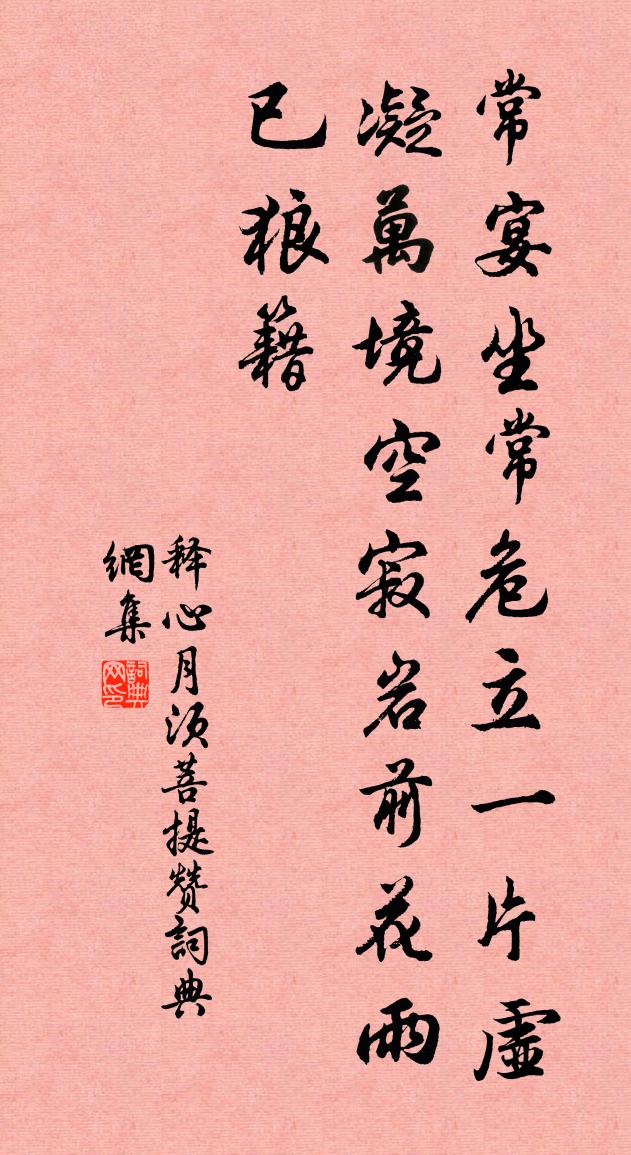 常宴坐常危立一片虛
凝萬境空寂岩前花雨
已狼籍
释心月须菩提赞詞典
網集
詞典
网印